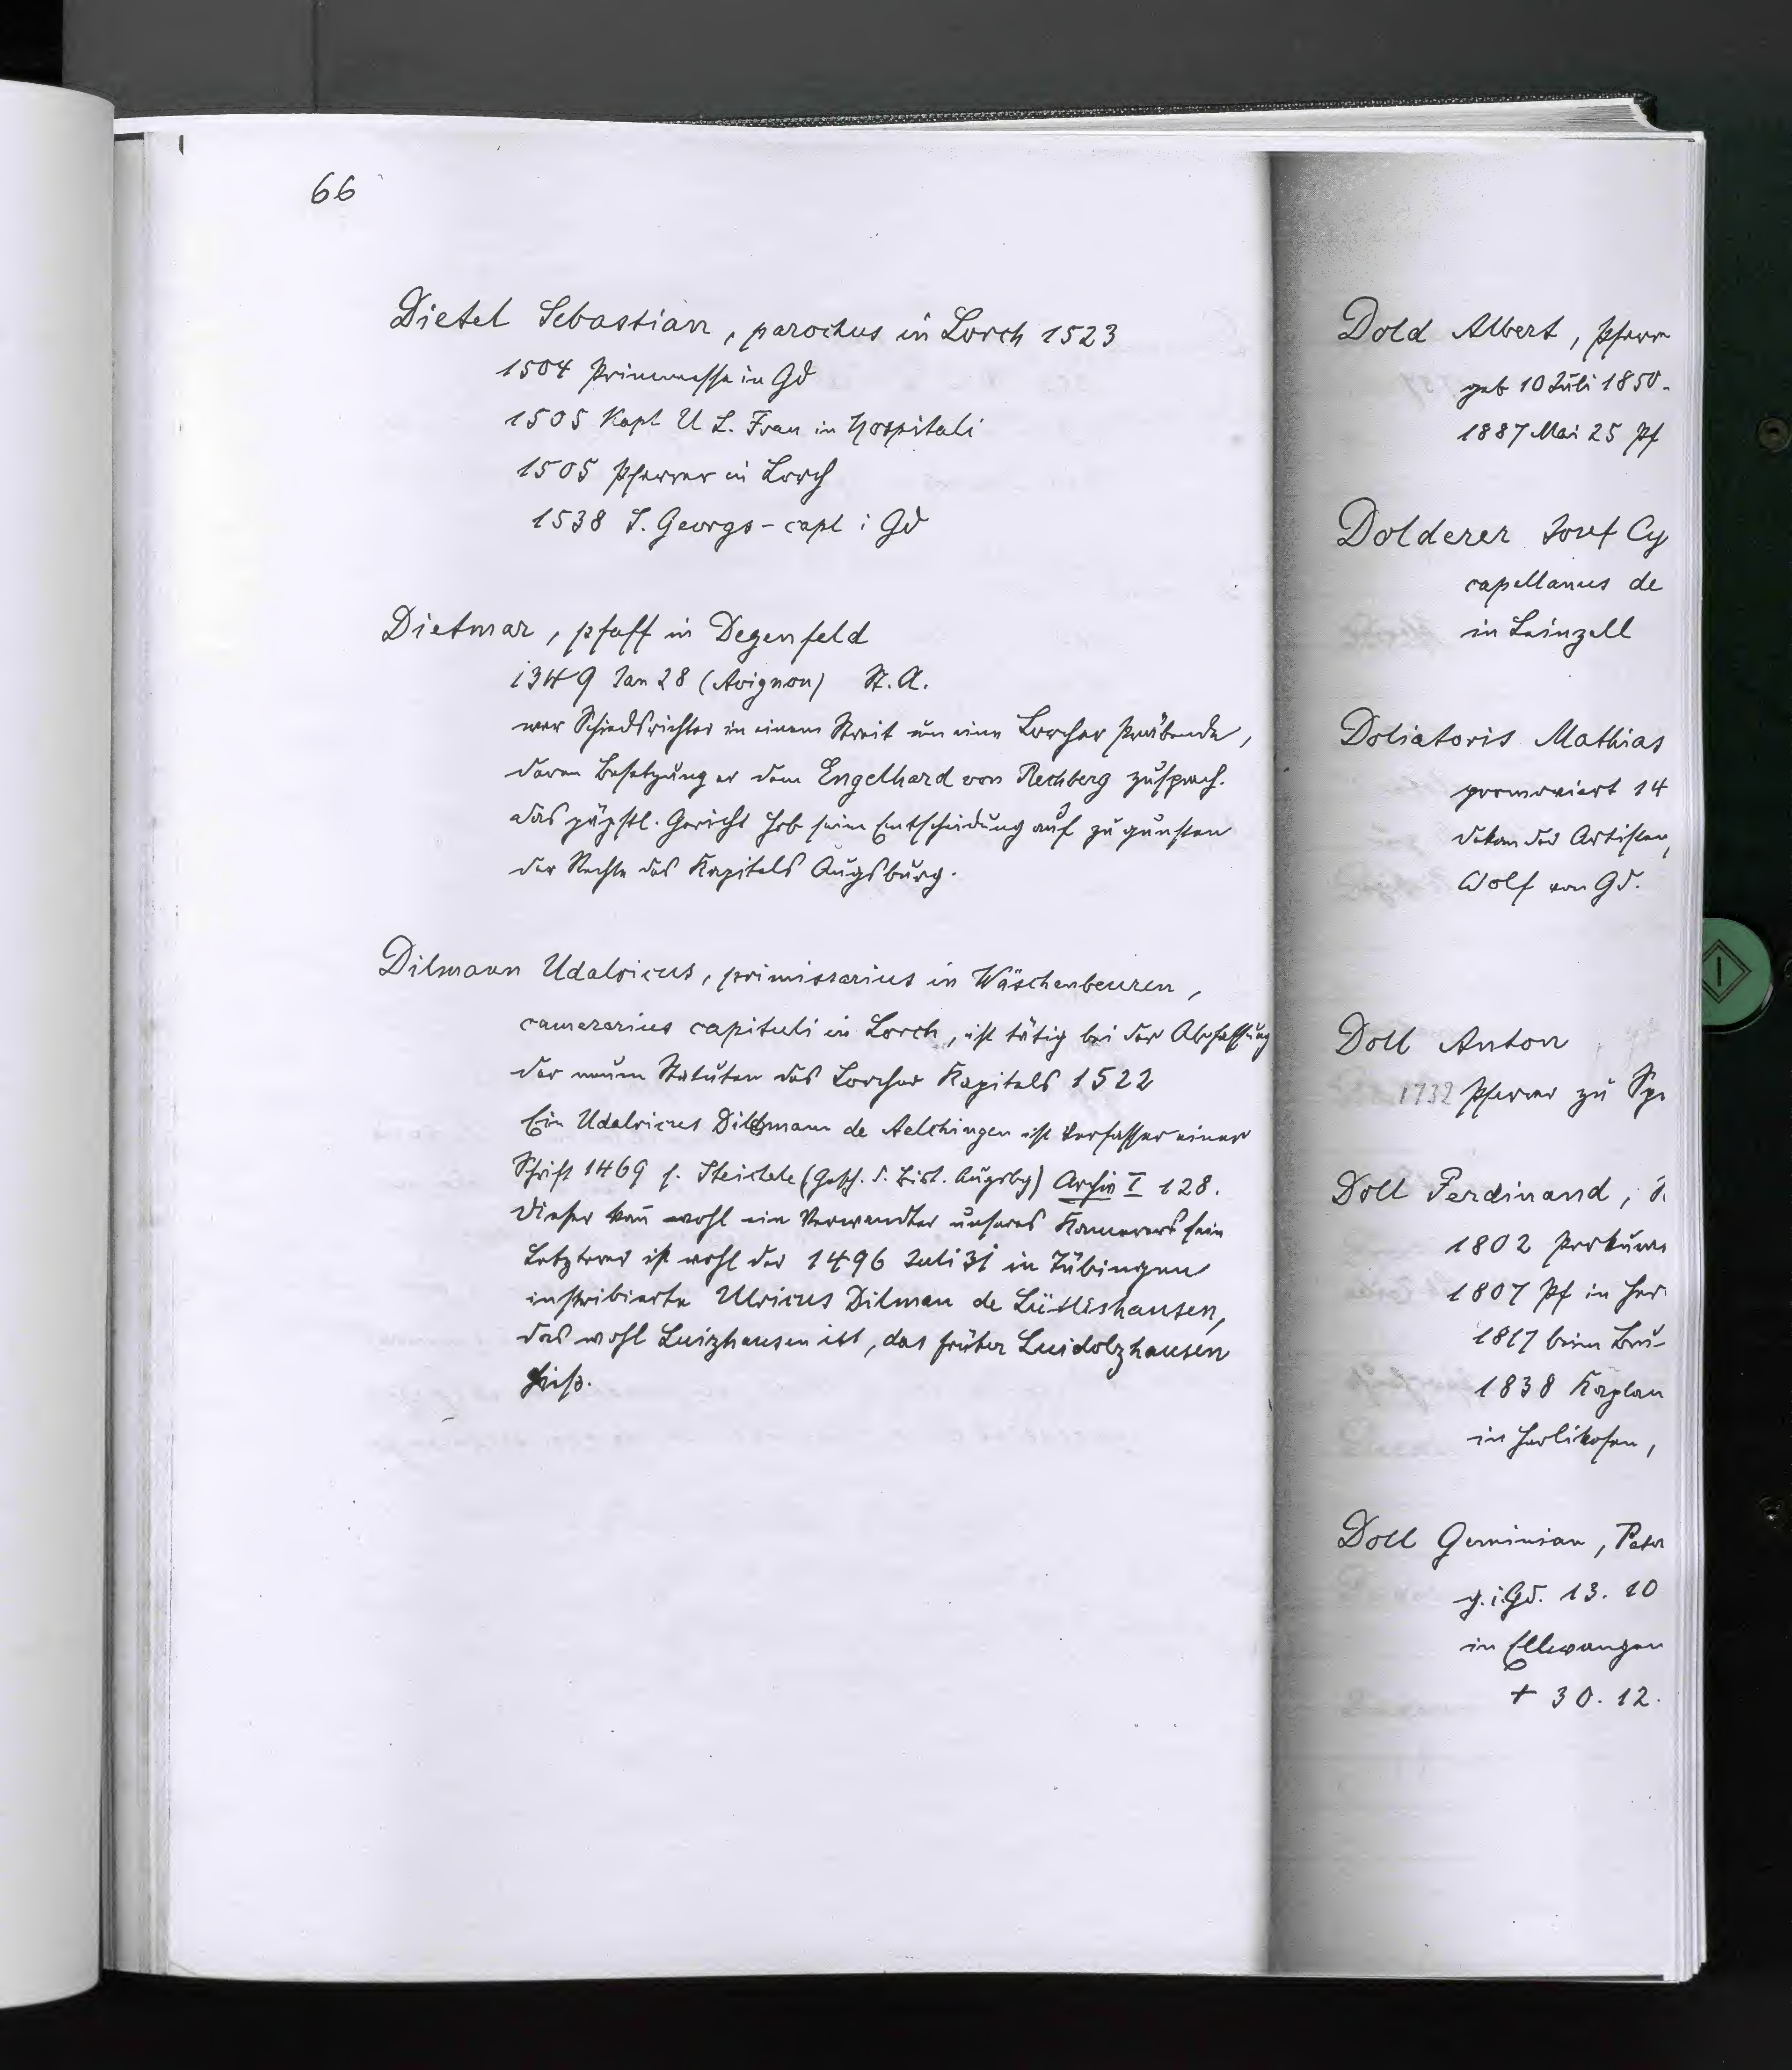 66
Dietel Sebastian, parochus in Lorch 1523
1504 Primmesse in Gd
1505 Kapl U L. Frau in Hospitali
1505 Pfarrer in Lorch
1538 S. Georgs-capl i Gd
Dietmar, pfaff in Degenfeld
1349 Jan 28 (Avignon) St. A.
war Schiedsrichter in einem Streit um eine Lorcher Präbende,
deren Besetzung er dem Engelhard von Rechberg zusprach.
das päpstl. Gericht hob seine Entscheidung auf zu gunsten
der Rechte des Kapitels Augsburg.
Dilmann Udalricus, primissarius in Wäschenbeuren,
camerarius capituli in Lorch, ist tätig bei der Abfassung
der neuen Statuten des Lorcher Kapitels 1522
Ein Udalricus Dilmann de Aelchingen ist Verfasser einer
Schrift 1469 s. Steichele (Gesch. d. Bist. Augsbg) Archiv I 128.
Dieser kan̄ wohl ein Verwandter unseres Kamerers sein
Letzterer ist wohl der 1496 Juli 31 in Tübingen
inskribierte Ulricus Dilman de Lütlishausen,
das wohl Luizhausen ist, das früher Luidolzhausen
hiess.
Dold Albert, Pfarr
geb 10 Juli 1850.
1887 Mai 25 Pf
Dolderer Josef Cy
capellanus de
in Leinzell
Doliatoris Mathias
promoviert 14
dekan der Artisten,
Wolf von Gd.
Doll Anton
1732 Pfarrer zu Spr
Doll Ferdinand,
1802
1807 Pf in Her
1817 beim
1838 Kaplan
in Herlikofen,
Doll Geminian, Pater
g. i Gd. 13. 10
in Ellwangen
+ 30. 12.